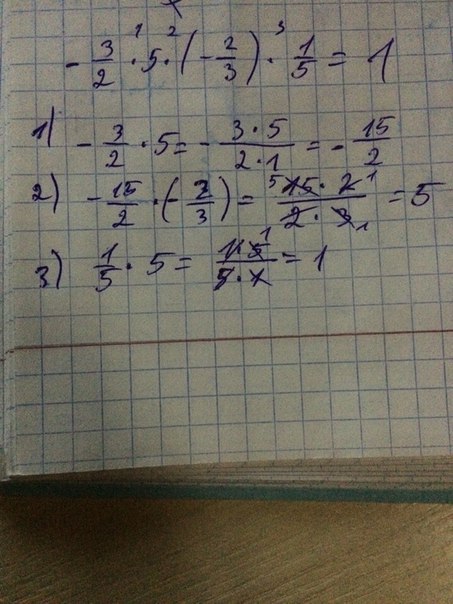 -3/2 ·¹ 5 ·² (-2/3) ·³ 1/5 = 1
1) -3/2 · 5 = -3·5/2·1 = -15/2
2) -15/2 · (-2/3) = ⁵15·2¹/2·3₁ = 5
3) 1/5 · 5 = 1·5¹/5·1 = 1